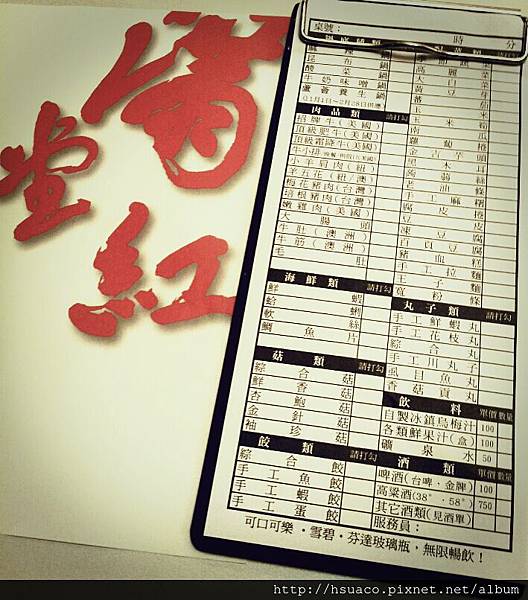 滿
堂
紅
桌號：　時　分
麻辣鍋
昆布鍋
酸菜鍋
牛奶味噌鍋
蘆薈養生鍋
肉品類 請打勾
招牌牛(美國)
頂級肥牛(美國)
頂級霜降牛(美國)
牛小排
小羊肩肉(紐)
羊五花(紐/澳)
梅花豬肉(台灣)
培根豬肉(台灣)
嫩雞肉(美國)
大腸頭
牛肚(澳洲)
牛筋(澳洲)
毛肚
海鮮類 請打勾
鮮蝦
蛤蜊
軟絲
鯛魚片
菇類 請打勾
綜合菇
鮮香菇
杏鮑菇
金針菇
袖珍菇
餃類 請打勾
綜合餃
手工魚餃
手工蝦餃
手工蛋餃
高麗菜
大白菜
黃豆芽
蕃茄
玉米
玉米筍
南瓜
蘿蔔
金針菇
芋頭
黑木耳
蒟蒻絲
老油條
手工麻糬
腐皮捲
豆皮
凍豆腐
百頁豆腐
豬血糕
手工拉麵
王子麵
寬粉條
丸子類 請打勾
手工鮮蝦丸
手工花枝丸
綜合丸
手工川丸子
虱目魚丸
香菇貢丸
飲料 單價 數量
自製冰鎮烏梅汁 100
各類鮮果汁(盒) 100
礦泉水 50
酒類 單價 數量
啤酒(台啤、金牌) 100
高粱酒(38°、58°) 750
其它酒類(見酒單)
服務員：
可口可樂・雪碧・芬達玻璃瓶，無限暢飲！
http://hsuaco.pixnet.net/album